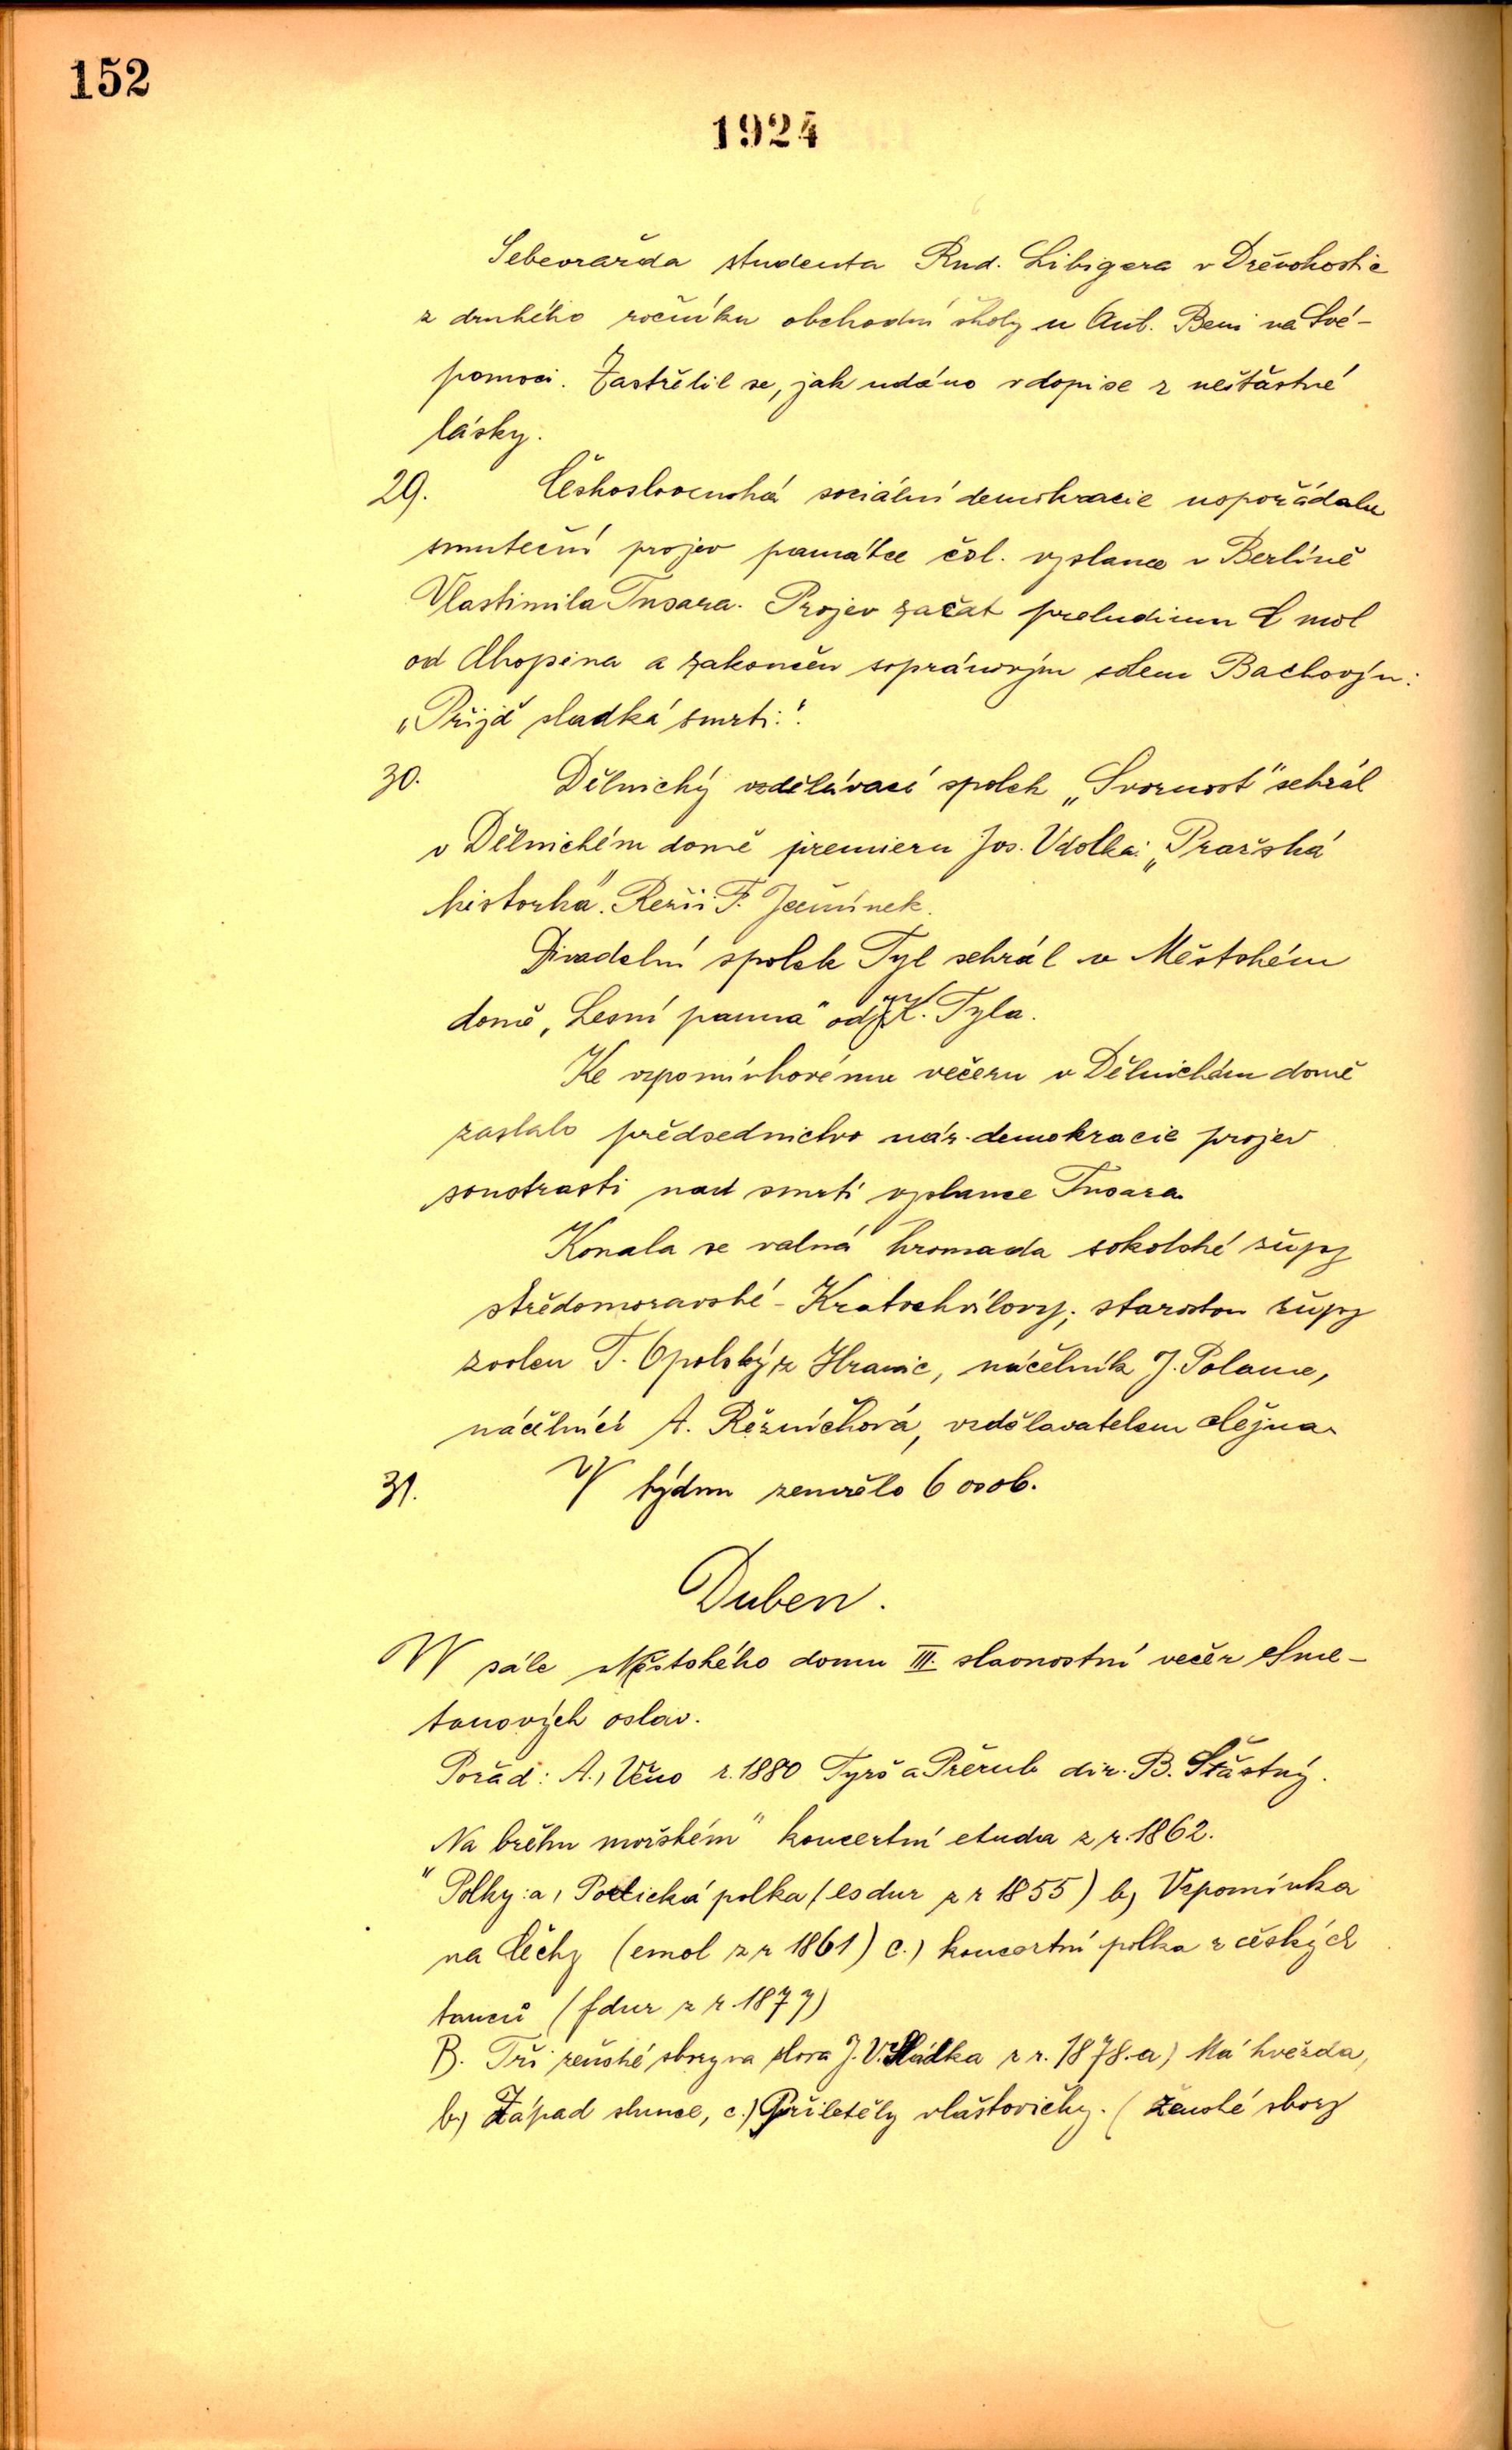 152
1924
Sebevražda studenta Rud. Libigera v Dřevohostic
z druhého ročníku obchodní školy u Ant. Beni na Své-
pomoci. Zastřelil se, jak udáno v dopise z nešťastné
lásky.
29. Československá sociální demokracie uspořádala
smuteční projev památce čsl. vyslance v Berlíně
Vlastimila Tusara. Projev začat preludium C mol
od Chopina a zakončen sopránovým sólem Bachovým:
„Přijď sladká smrti."
30. Dělnický vzdělávací spolek „Svornost" sehrál
v Dělnickém domě premieru Jos. Vdolka: „Pražská
historka". Režii F. Ječmínek.
Divadelní spolek Tyl sehrál v Městském
domě „Lesní panna" od J. K. Tyla.
Ke vzpomínkovému večeru v Dělnickém domě
zaslalo předsednictvo nár. demokracie projev
soustrasti nad smrtí vyslance Tusara.
Konala se valná hromada sokolské župy
středomoravské - Kratochvílovy; starostou župy
zvolen T. Opolský z Hranic, náčelník J. Polame,
náčelnicí A. Řezníčková, vzdělavatelemClejna.
31. V týdnu zemřelo 6 osob.
Duben.
V sále Městského domu III. slavnostní večer Sme-
tanových oslav.
Pořad: A., Věno r. 1880 Tyrš a Přerub dir. B. Šťastný.
„Na břehu mořském" koncertní etuda z r. 1862.
Polky: a, Poetická polka (es dur z r 1855) b, Vzpomínka
na Čechy (emol z r 1861) c.) koncertní polka z českých
tanců (fdur z r. 1877)
B. Tři ženské sbory na slova J. V. Sládka z r. 1878. a) Má hvězda,
b.) Západ slunce, c.) Přiletěly vlaštovičky. (ženské sbory